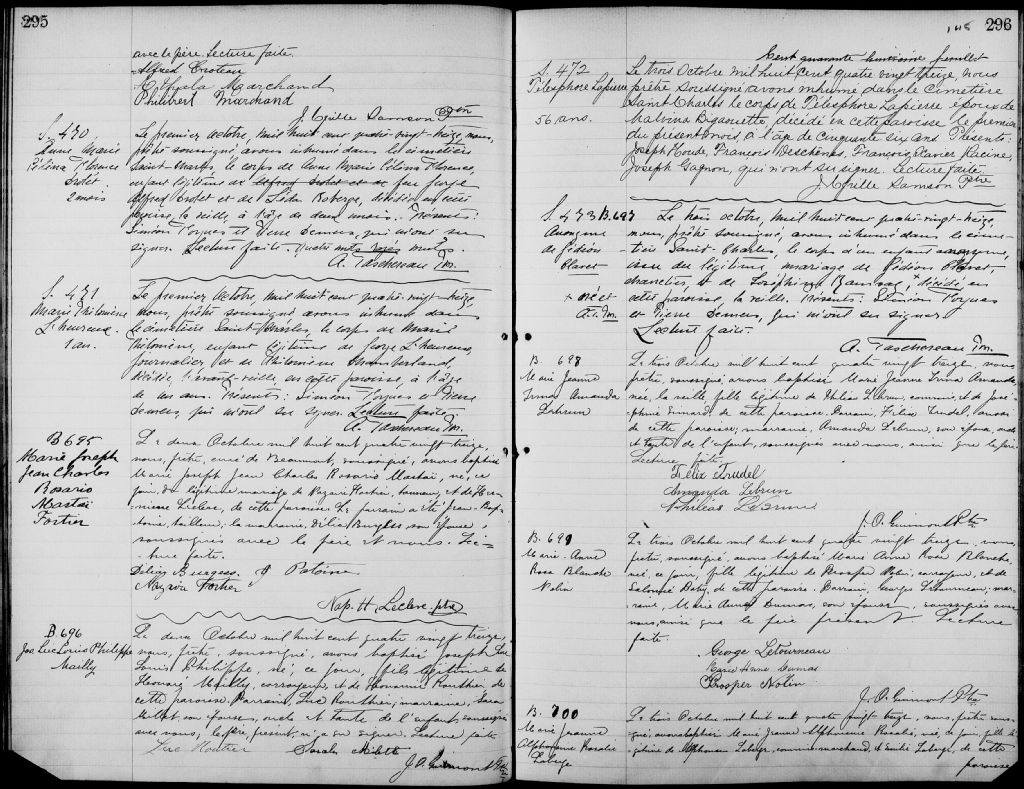 295
avec le père. Lecture faite.
Alfred Croteau
Marchand
Philibert Marchand
J. Aville Samson Ptre
S. 470
Anne Marie
Célina Florence
Drolet
2 mois
Le premier octobre, mil huit cent quatre-vingt-treize, nous,
prêtre soussigné avons inhumé dans le cimetière
Saint-Charles, le corps de Anne Marie Célina Florence,
enfant légitime de feu George
Alfred Drolet et de Léda Roberge, décédée en cette
paroisse, la veille, à l'âge de deux mois. Présents:
Simon Forgues et Pierre Demers, qui n'ont su
signer. Lecture faite. Quatre mots rayés nuls.
A. Taschereau Ptre.
S. 471
Marie Philomène
L'heureux
1 an.
Le premier octobre, mil huit cent quatre-vingt-treize
nous, prêtre soussigné avons inhumé dans
le cimetière Saint-Charles, le corps de Marie
Philomène, enfant légitime de George L'heureux,
journalier et de Philomène
décédée, l'avant-veille en cette paroisse, à l'âge
de un an. Présents: Simon Forgues et Pierre
Demers, qui n'ont su signer. Lecture faite.
A. Taschereau Ptre.
B 695
Marie Joseph
Jean Charles
Rosario
Mastaï
Fortier
Le deux Octobre mil huit cent quatre vingt treize,
nous, prêtre, curé de Beaumont, soussigné, avons baptisé
Marie Joseph Jean Charles Rosario Mastaï, né, ce
jour, du légitime mariage de Nazaire Fortier, tanneur, et de
Leclerc, de cette paroisse. Le parrain a été Jean-Bap-
tiste, tailleur, la marraine, Délia Burgess son épouse,
soussignés avec le père et nous. Lec-
ture faite.
Délia Burgess J Patoine
Nazaire Fortier
Nap. H. Leclerc, ptre
B. 696
Jos Luc Louis Philippe
Mailly
Le deux Octobre mil huit cent quatre vingt treize,
nous, prêtre, soussigné, avons baptisé Joseph Luc
Louis Philippe, né, ce jour, fils légitime de
Honoré Mailly, corroyeur, et de Routhier de
cette paroisse. Parrain, Luc Routhier; marraine, Sara
Milot son épouse, oncle et tante de l'enfant, soussignés
avec nous; le père, présent, n'a su signer. Lecture faite
Luc Routier Sarah Milette
J. O. Guimont Ptre
148 296
Cent quarante huitième feuillet
S. 472
Télesphore Lapierre
56 ans.
Le trois Octobre mil huit cent quatre vingt treize, nous
prêtre soussigné avons inhumé dans le cimetière
Saint Charles le corps de Télesphore Lapierre époux de
Malvina Bigaouette décédé en cette paroisse le premier
du présent mois, à l'âge de cinquante six ans. Présents:
Joseph Houde, François Deschênes, François Xavier Racine,
Joseph Gagnon, qui n'ont su signer. Lecture faite.
J. Aville Samson Ptre
S. 473 B. 697
Anonyme
de Gédéon
Claret
+ né et
A. T. Ptre.
Le trois octobre, mil huit cent quatre-vingt-treize,
nous, prêtre soussigné, avons inhumé dans le cime-
tière Saint-Charles, le corps d'un enfant anonyme,
issu du légitime mariage de Gédéon Claret,
chancelier, et de Joséphine + décédé en
cette paroisse, la veille. Présents: Simon Forgues
et Pierre Demers, qui n'ont su signer.
Lecture faite.
A. Taschereau Ptre.
B. 698
Marie Jeanne
Irma Amanda
Lebrun
Le trois Octobre mil huit cent quatre vingt treize, nous
prêtre, soussigné, avons baptisé Marie Jeanne Irma Amanda
née, la veille, fille légitime de Philias Lebrun, commis, et de José-
phine Simard, de cette paroisse. Parrain, Félix Trudel,
de cette paroisse; marraine, Amanda Lebrun, son épouse, oncle
et tante de l'enfant, soussignés avec nous, ainsi que le père
Lecture faite
Félix Trudel
Amanda Lebrun
Philias LeBrun
J. O. Guimont Ptre
B. 699
Marie Anne
Rose Blanche
Nolin
Le trois Octobre mil huit cent quatre vingt treize, nous,
prêtre, soussigné, avons baptisé Marie Anne Rose Blanche,
née, ce jour, fille légitime de Prosper Nolin, corroyeur, et de
Salomée Doty, de cette paroisse. Parrain, George Létourneau; mar-
raine, Marie Anne Dumas, son épouse, soussignés avec
nous, ainsi que le père présent. Lecture
faite.
George Letourneau
Marie Anne Dumas
Prosper Nolin
J. O. Guimont Ptre
B. 700
Marie Jeanne
Alphonsine Rosalie
Laberge
Le trois Octobre mil huit cent quatre vingt treize, nous, prêtre sous-
signé, avons baptisé Marie Jeanne Alphonsine Rosalie, née, ce jour, fille lé-
gitime de Alphonse Laberge, commis-marchand, et Emilie Laberge, de cette
paroisse